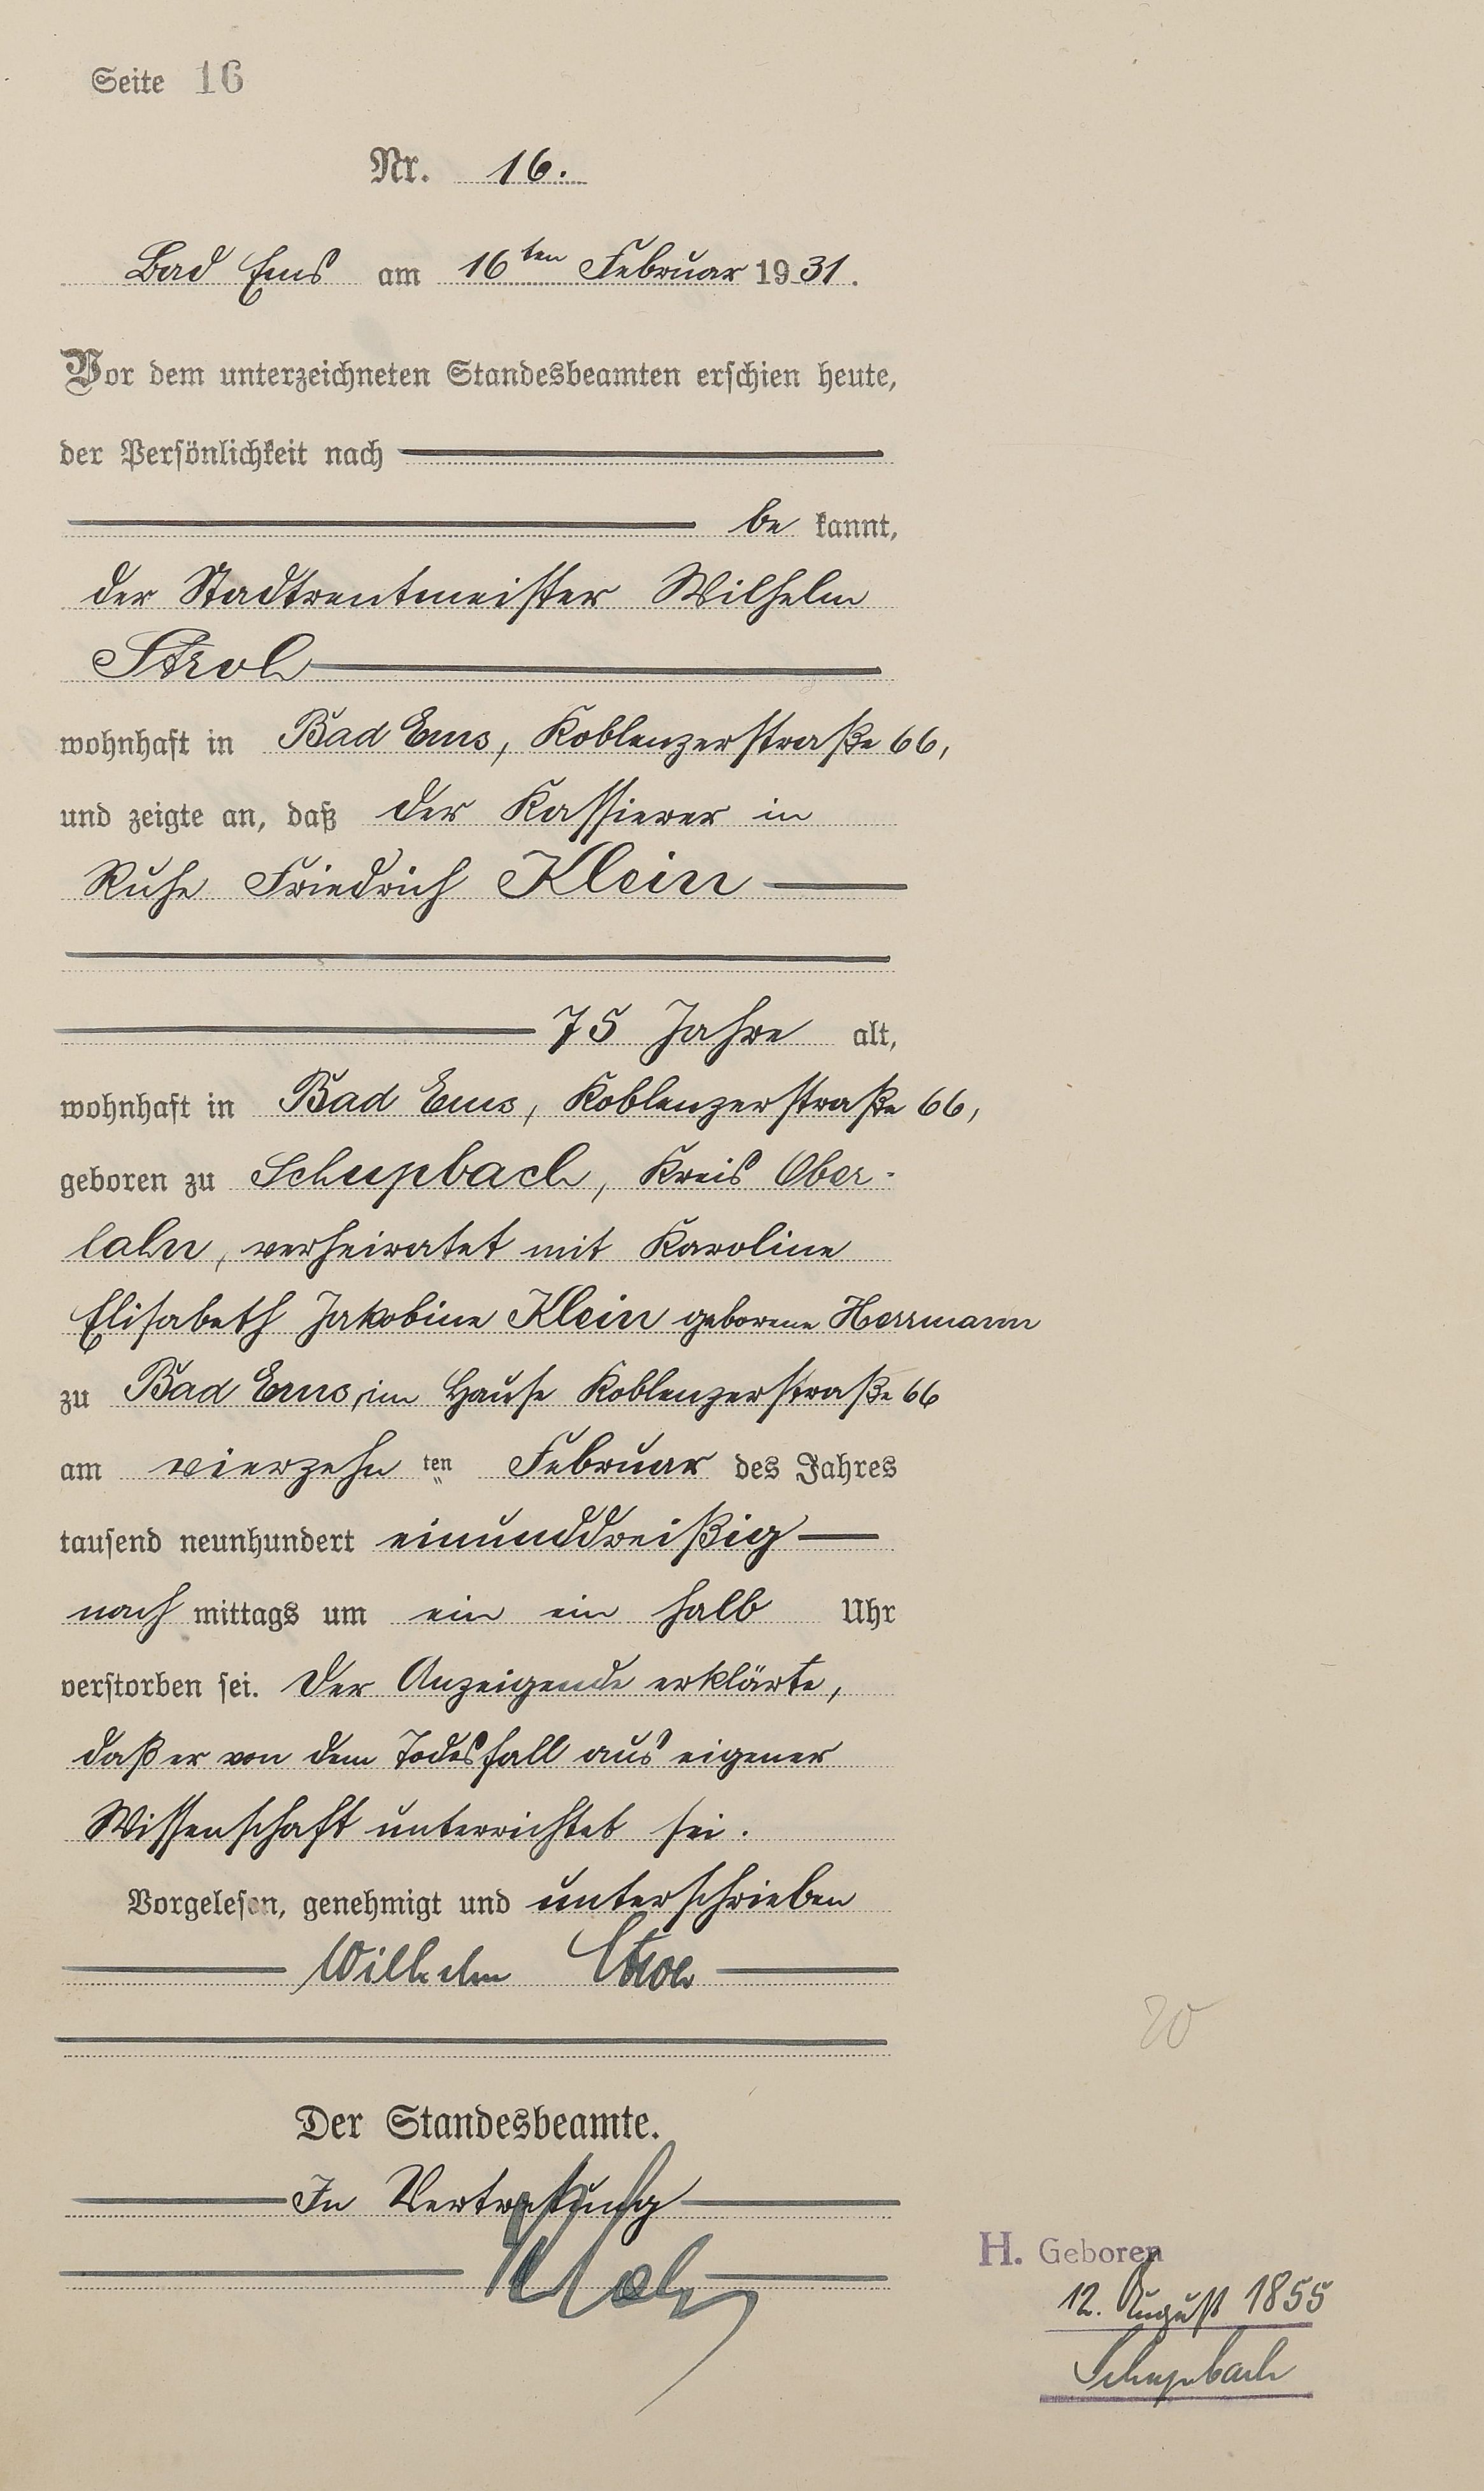 Seite 16
Nr. 16.
Bad Ems am 16ten Februar 1931.
Vor dem unterzeichneten Standesbeamten erschien heute,
der Persönlichkeit nach
be kannt,
der Stadtrentmeister Wilhelm
Stroh
wohnhaft in Bad Ems, Koblenzerstraße 66,
und zeigte an, daß der Kassierer in
Ruhe Friedrich Klein
75 Jahre alt,
wohnhaft in Bad Ems, Koblenzerstraße 66,
geboren zu Schupbach, Kreis Ober-
lahn, verheiratet mit Karoline
Elisabeth Jakobine Klein geborene Herrmann
zu Bad Ems, im Hause Koblenzerstraße 66
am vierzehn ten Februar des Jahres
tausend neunhundert einunddreißig
nach mittags um ein ein halb Uhr
verstorben sei. Der Anzeigende erklärte,
daß er von dem Todesfall aus eigener
Wissenschaft unterrichtet sei.
Vorgelesen, genehmigt und unterschrieben
Wilhelm Stroh
Der Standesbeamte.
In Vertretung
20
H. Geboren
12. August 1855
Schupbach